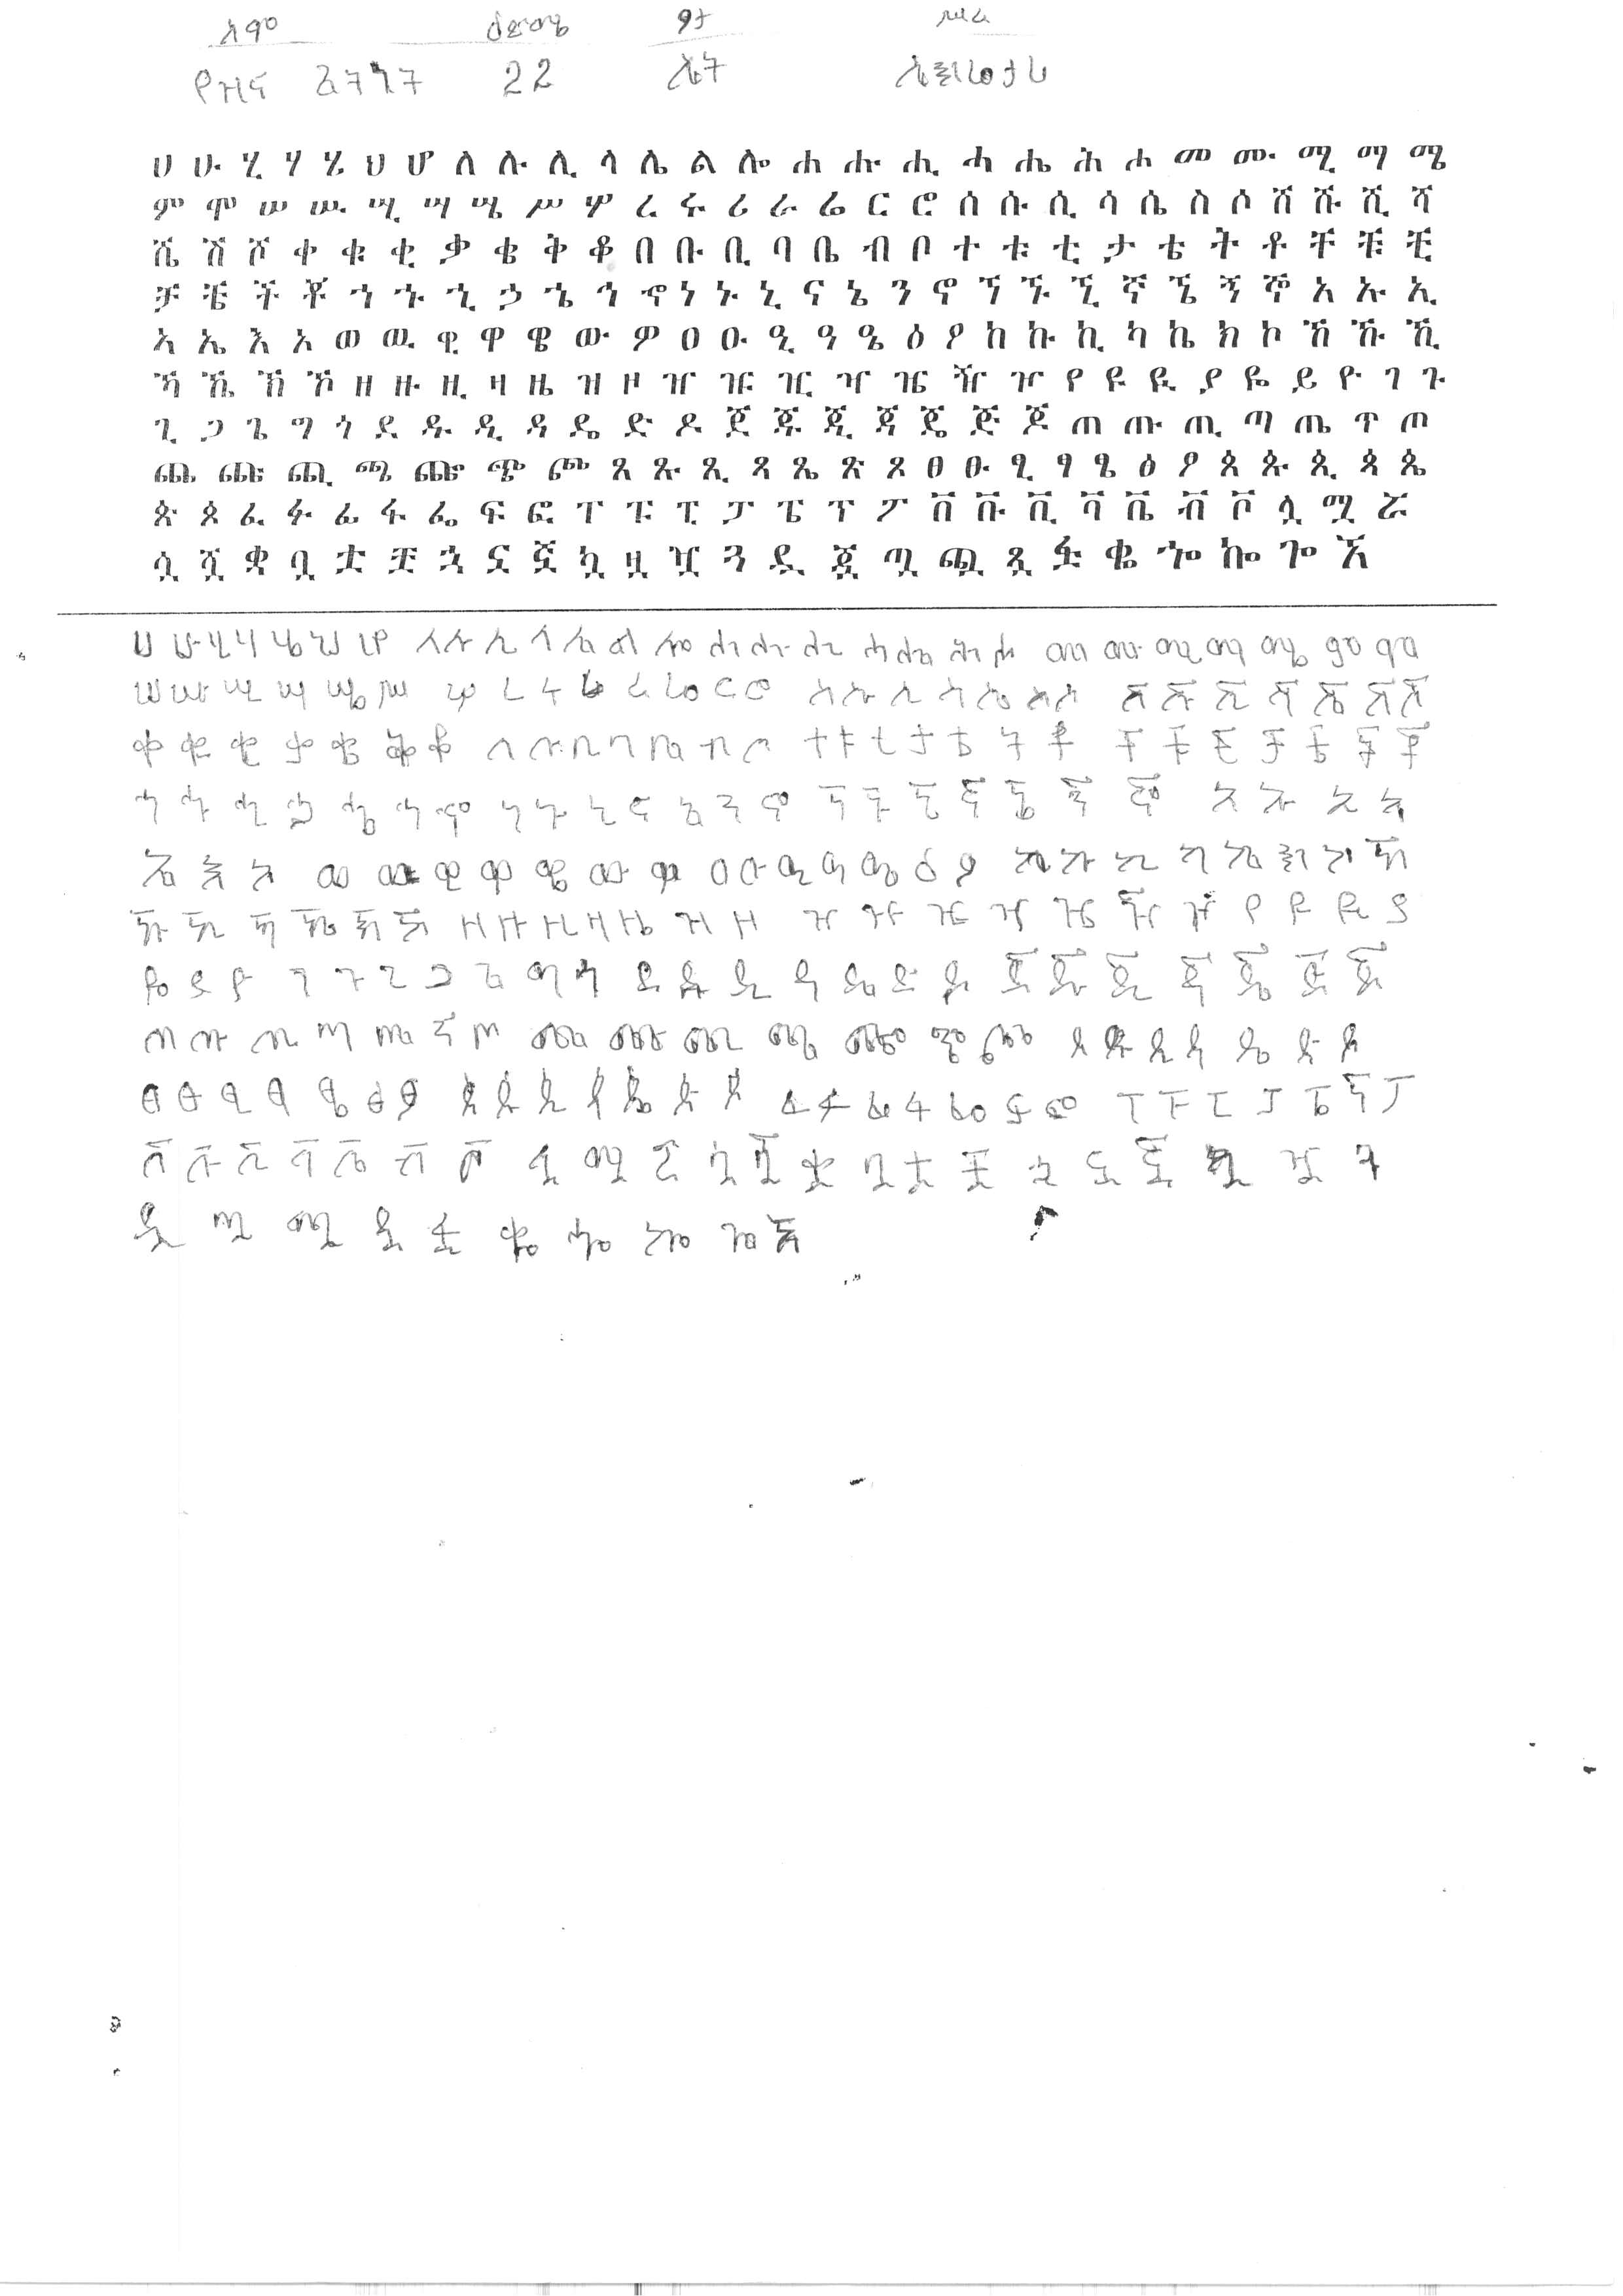 ስም ዕድሜ ፆታ ሥራ
የዝና ፈትጎች 22 ሴት ሴክሬታሪ
ሀ ሁ ሂ ሃ ሄ ህ ሆ ለ ሉ ሊ ላ ሌ ል ሎ ሐ ሑ ሒ ሓ ሔ ሕ ሖ መ ሙ ሚ ማ ሜ
ም ሞ ሠ ሡ ሢ ሣ ሤ ሥ ሦ ረ ሩ ሪ ራ ሬ ር ሮ ሰ ሱ ሲ ሳ ሴ ስ ሶ ሸ ሹ ሺ ሻ
ሼ ሽ ሾ ቀ ቁ ቂ ቃ ቄ ቅ ቆ በ ቡ ቢ ባ ቤ ብ ቦ ተ ቱ ቲ ታ ቴ ት ቶ ቸ ቹ ቺ
ቻ ቼ ች ቾ ኀ ኁ ኂ ኃ ኄ ኅ ኆ ነ ኑ ኒ ና ኔ ን ኖ ኘ ኙ ኚ ኛ ኜ ኝ ኞ አ ኡ ኢ
ኣ ኤ እ ኦ ወ ዉ ዊ ዋ ዌ ው ዎ ዐ ዑ ዒ ዓ ዔ ዕ ዖ ከ ኩ ኪ ካ ኬ ክ ኮ ኸ ኹ ኺ
ኻ ኼ ኽ ኾ ዘ ዙ ዚ ዛ ዜ ዝ ዞ ዠ ዡ ዢ ዣ ዤ ዥ ዦ የ ዩ ዪ ያ ዬ ይ ዮ ገ ጉ
ጊ ጋ ጌ ግ ጎ ደ ዱ ዲ ዳ ዴ ድ ዶ ጀ ጁ ጂ ጃ ጄ ጅ ጆ ጠ ጡ ጢ ጣ ጤ ጥ ጦ
ጨ ጩ ጪ ጫ ጬ ጭ ጮ ጸ ጹ ጺ ጻ ጼ ጽ ጾ ፀ ፁ ፂ ፃ ፄ ፅ ፆ ጰ ጱ ጲ ጳ ጴ
ጵ ጶ ፈ ፉ ፊ ፋ ፌ ፍ ፎ ፐ ፑ ፒ ፓ ፔ ፕ ፖ ቨ ቩ ቪ ቫ ቬ ቭ ቮ ሏ ሟ ሯ
ሷ ሿ ቋ ቧ ቷ ቿ ኋ ኗ ኟ ኳ ዟ ዧ ጓ ዷ ጇ ጧ ጯ ጿ ፏ ቈ ኈ ኰ ጐ ኧ
ሀ ሁ ሂ ሃ ሄ ህ ሆ ለ ሉ ሊ ላ ሌ ል ሎ ሐ ሑ ሒ ሓ ሔ ሕ ሖ መ ሙ ሚ ማ ሜ ም ሞ
ሠ ሡ ሢ ሣ ሤ ሥ ሦ ረ ሩ ሪ ራ ሬ ር ሮ ሰ ሱ ሲ ሳ ሴ ስ ሶ ሸ ሹ ሺ ሻ ሼ ሽ ሾ
ቀ ቁ ቂ ቃ ቄ ቅ ቆ በ ቡ ቢ ባ ቤ ብ ቦ ተ ቱ ቲ ታ ቴ ት ቶ ቸ ቹ ቺ ቻ ቼ ች ቾ
ኀ ኁ ኂ ኃ ኄ ኅ ኆ ነ ኑ ኒ ና ኔ ን ኖ ኘ ኙ ኚ ኛ ኜ ኝ ኞ አ ኡ ኢ ኣ
ኤ እ ኦ ወ ዉ ዊ ዋ ዌ ው ዎ ዐ ዑ ዒ ዓ ዔ ዕ ዖ ከ ኩ ኪ ካ ኬ ክ ኮ ኸ
ኹ ኺ ኻ ኼ ኽ ኾ ዘ ዙ ዚ ዛ ዜ ዝ ዞ ዠ ዡ ዢ ዣ ዤ ዥ ዦ የ ዩ ዪ ያ
ዬ ይ ዮ ገ ጉ ጊ ጋ ጌ ግ ጎ ደ ዱ ዲ ዳ ዴ ድ ዶ ጀ ጁ ጂ ጃ ጄ ጅ ጆ
ጠ ጡ ጢ ጣ ጤ ጥ ጦ ጨ ጩ ጪ ጫ ጬ ጭ ጮ ጸ ጹ ጺ ጻ ጼ ጽ ጾ
ፀ ፁ ፂ ፃ ፄ ፅ ፆ ጰ ጱ ጲ ጳ ጴ ጵ ጶ ፈ ፉ ፊ ፋ ፌ ፍ ፎ ፐ ፑ ፒ ፓ ፔ ፕ ፖ
ቨ ቩ ቪ ቫ ቬ ቭ ቮ ሏ ሟ ሯ ሷ ሿ ቋ ቧ ቷ ቿ ኋ ኗ ኟ ኳ ዧ ጓ
ዷ ጧ ጯ ጿ ፏ ቈ ኈ ኰ ጐ ኧ